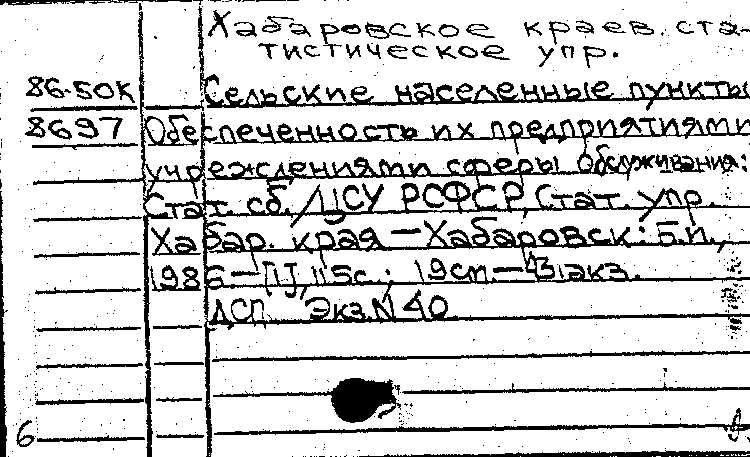 Хабаровское краев. ста-
тистическое упр.
86-50К Сельские населенные пункты
8697 Обеспеченность их предприятиями
учреждениями сферы обслуживания:
Стат. сб./ЦСУ РСФСР, Стат. упр.
Хабар. края — Хабаровск: Б.и.,
1986.—[1], 115с.; 19см.—43экз.
ДСП Экз.N 40
6